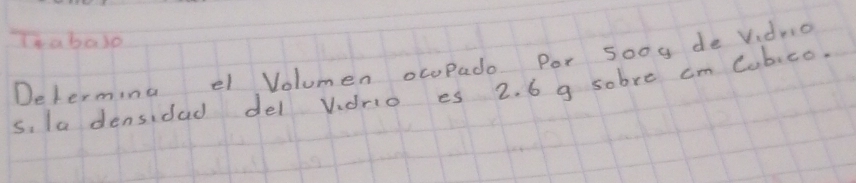 Trabajo
Determina el Volumen ocupado Por 500g de Vidrio
si la densidad del Vidrio es 2.6 g sobre cm Cubico.